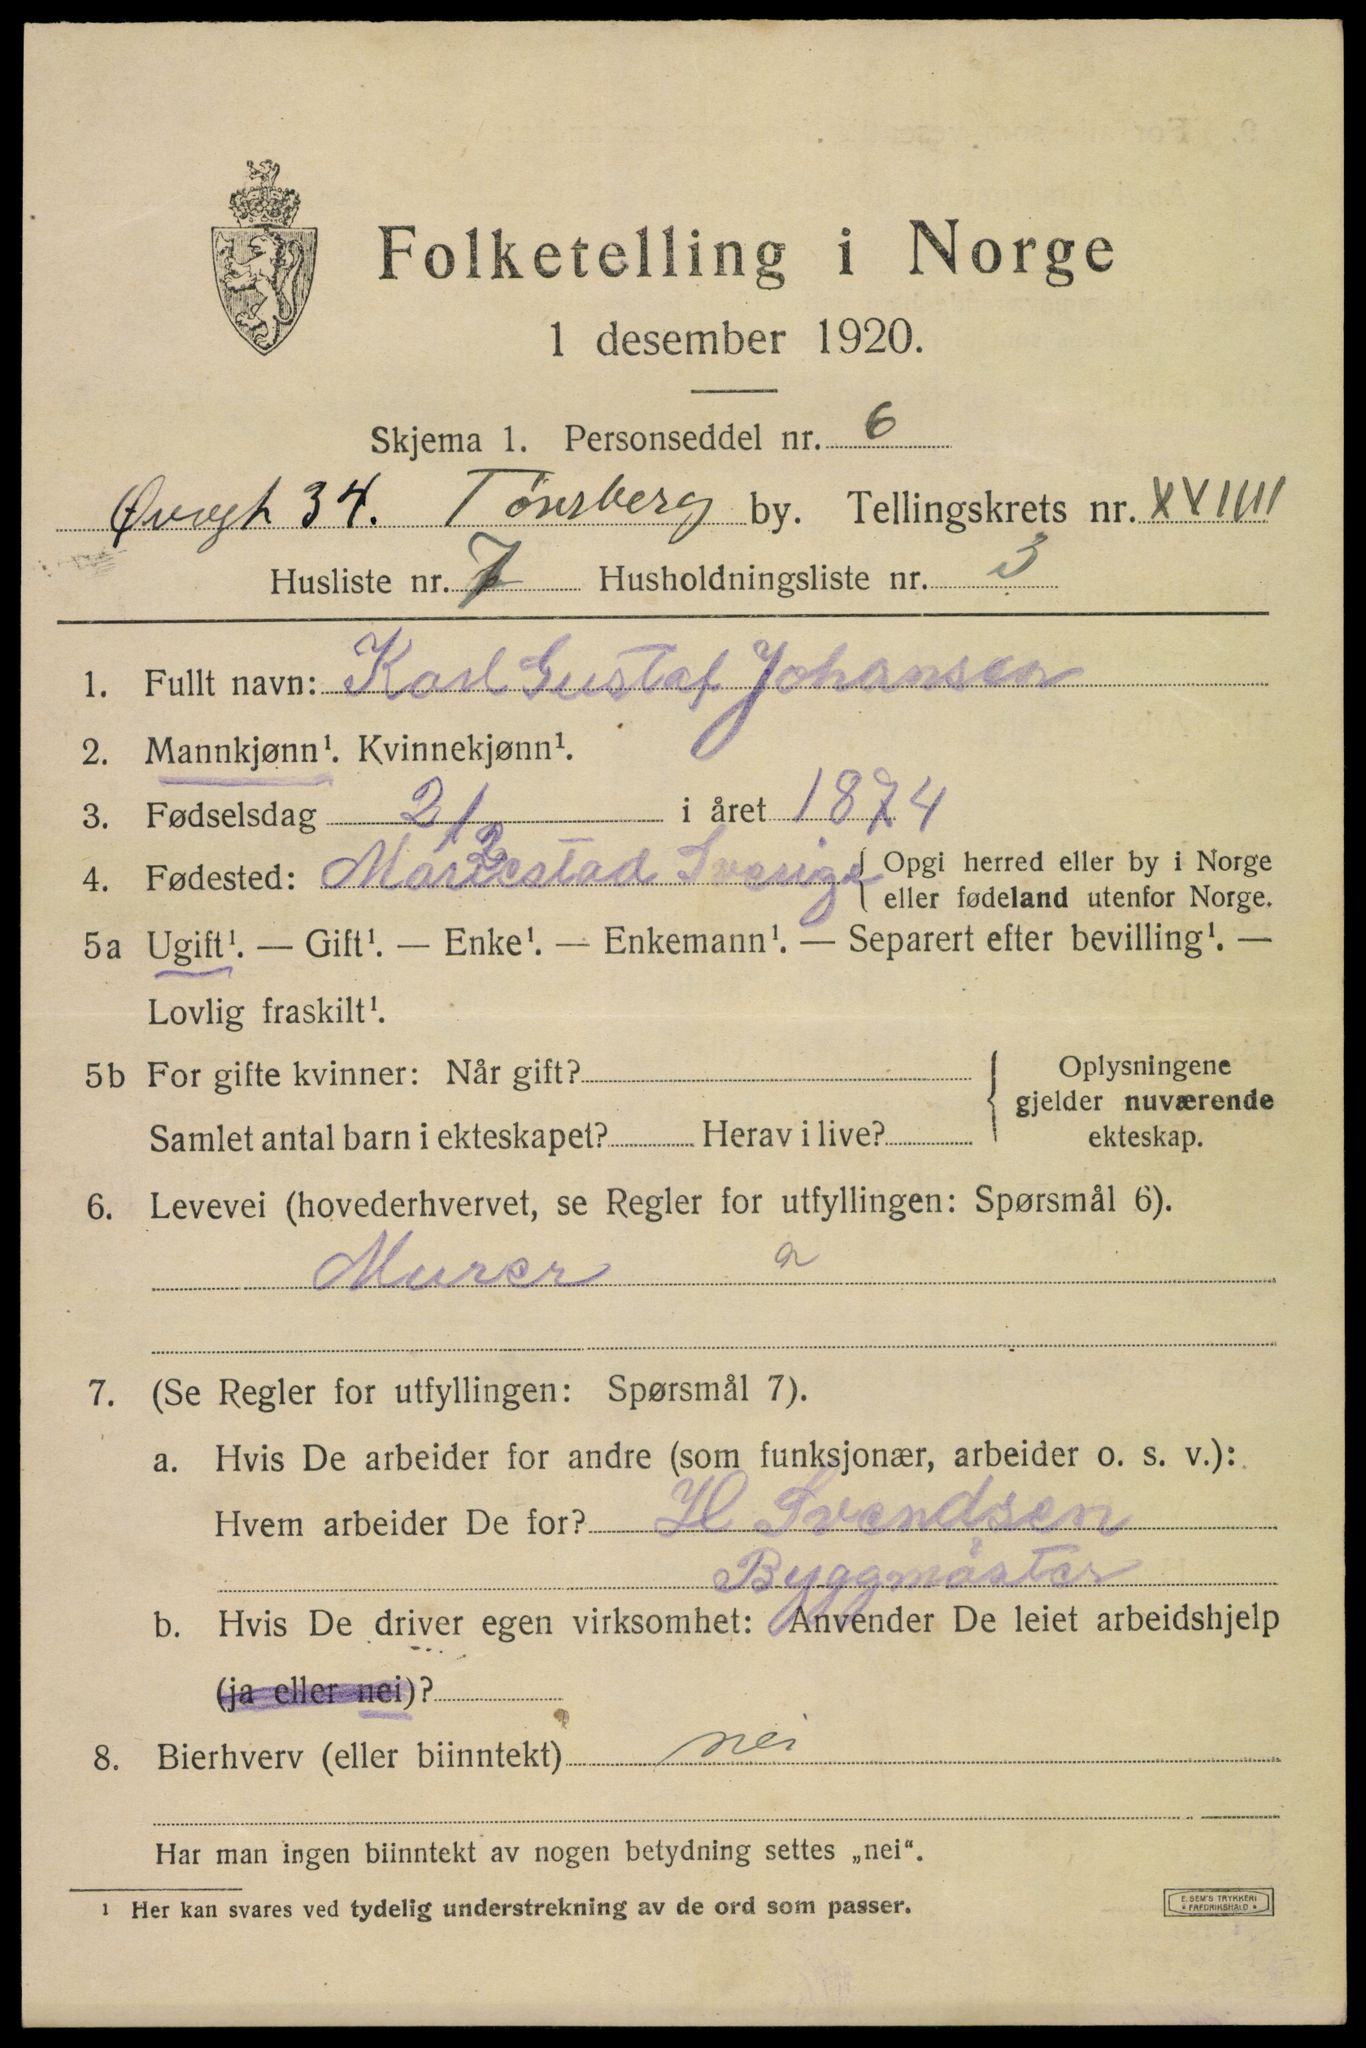 Folketelling i Norge
1 desember 1920.
Skjema 1. Personseddel nr. 6
Øvregt 34. Tönsberg by. Tellingskrets nr. XVIIII
Husliste nr. 7 Husholdningsliste nr. 3
1. Fullt navn: Karl Gustaf Johansen
2. Mannkjønn¹. Kvinnekjønn¹.
3. Fødselsdag 2/2 i året 1874
4. Fødested: Mariestad Sverige { Opgi herred eller by i Norge
eller fødeland utenfor Norge.
5a Ugift¹. — Gift¹. — Enke¹. — Enkemann¹. — Separert efter bevilling¹. —
Lovlig fraskilt¹.
5b For gifte kvinner: Når gift? { Oplysningene
gjelder nuværende
Samlet antal barn i ekteskapet? Herav i live? ekteskap.
6. Levevei (hovederhvervet, se Regler for utfyllingen: Spørsmål 6).
Murer a
7. (Se Regler for utfyllingen: Spørsmål 7).
a. Hvis De arbeider for andre (som funksjonær, arbeider o. s. v.):
Hvem arbeider De for? H Svendsen
Byggmäster
b. Hvis De driver egen virksomhet: Anvender De leiet arbeidshjelp
(ja eller nei)?
8. Bierhverv (eller biinntekt) nei
Har man ingen biinntekt av nogen betydning settes „nei“.
¹ Her kan svares ved tydelig understrekning av de ord som passer.
E. SEM'S TRYKKERI
* FREDRIKSHALD *